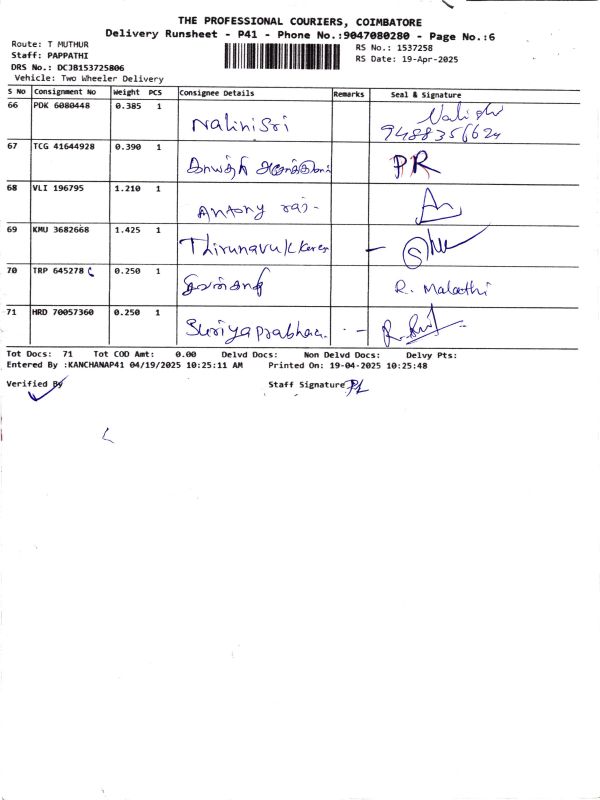 THE PROFESSIONAL COURIERS, COIMBATORE
Delivery Runsheet - P41 - Phone No.:9047080280 - Page No.:6
Route: T MUTHUR
RS No.: 1537258
Staff: PAPPATHI
RS Date: 19-Apr-2025
DRS No.: DCJB153725806
Vehicle: Two Wheeler Delivery
S No Consignment No Weight PCS Consignee Details Remarks Seal & Signature
66 PDK 6080448 0.385 1 Nalinisri 9488356624
67 TCG 41644928 0.390 1 PR
68 VLI 196795 1.210 1 Antony raj-
69 KMU 3682668 1.425 1
70 TRP 645278 0.250 1 R. Malathi
71 HRD 70057360 0.250 1
Tot Docs: 71 Tot COD Amt: 0.00 Delvd Docs: Non Delvd Docs: Delvy Pts:
Entered By :KANCHANAP41 04/19/2025 10:25:11 AM Printed On: 19-04-2025 10:25:48
Verified By Staff Signature